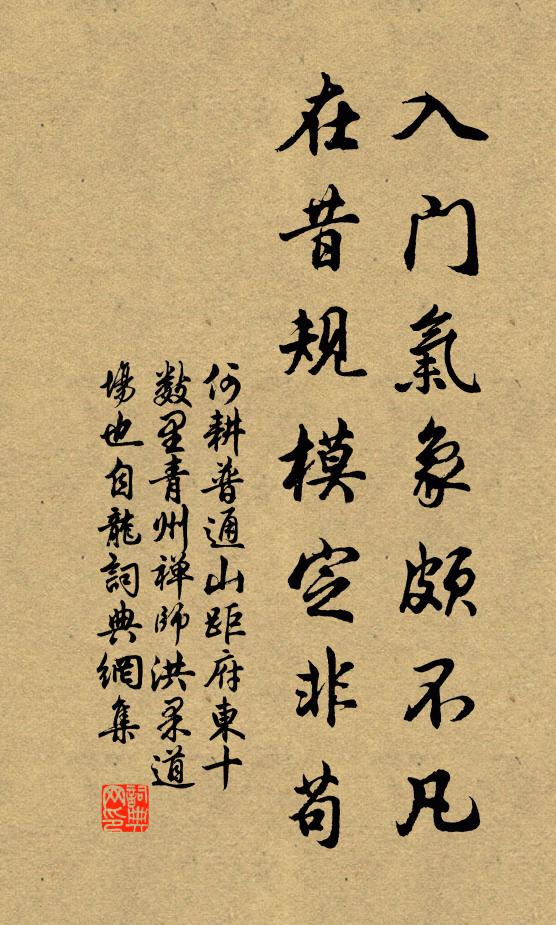 入門氣象頗不凡
在昔規模定非苟
何耕普通山距府東十
數里青州禅師洪杲道
場也自龍詞典網集
詞典
网印